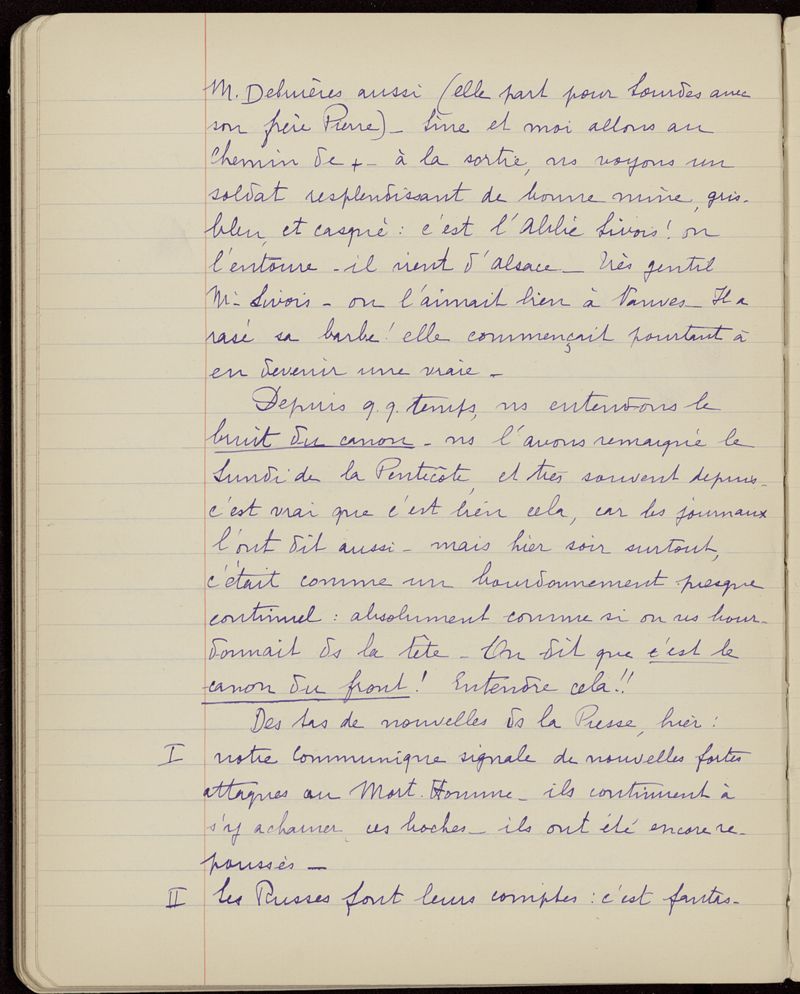 M. Debuières aussi (elle part pour Lourdes avec
son frère Pierre) - Line et moi allons au
chemin de + - à la sortie, ns voyons un
soldat resplendissant de bonne mine, gris-
bleu, et casqué : c'est l'Abbé Livois! on
l'entoure - il vient d'Alsace - Très gentil
Mr Livois - on l'aimait bien à Vanves - Il a
rasé sa barbe! elle commençait pourtant à
en devenir une vraie -
Depuis q.q. temps, ns entendons le
bruit du canon - ns l'avons remarqué le
Lundi de la Pentecôte, et très souvent depuis -
c'est vrai que c'est bien cela, car les journaux
l'ont dit aussi - mais hier soir surtout,
c'était comme un bourdonnement presque
continuel : absolument comme si on ns bour-
donnait ds la tête - On dit que c'est le
canon du front! Entendre cela!!
Des tas de nouvelles ds la Presse, hier :
I notre communiqué signale de nouvelles fortes
attaques au Mort-Homme - ils continuent à
s'y acharner, ces boches - ils ont été encore re-
poussés -
II Les Russes font leurs comptes : c'est fantas-